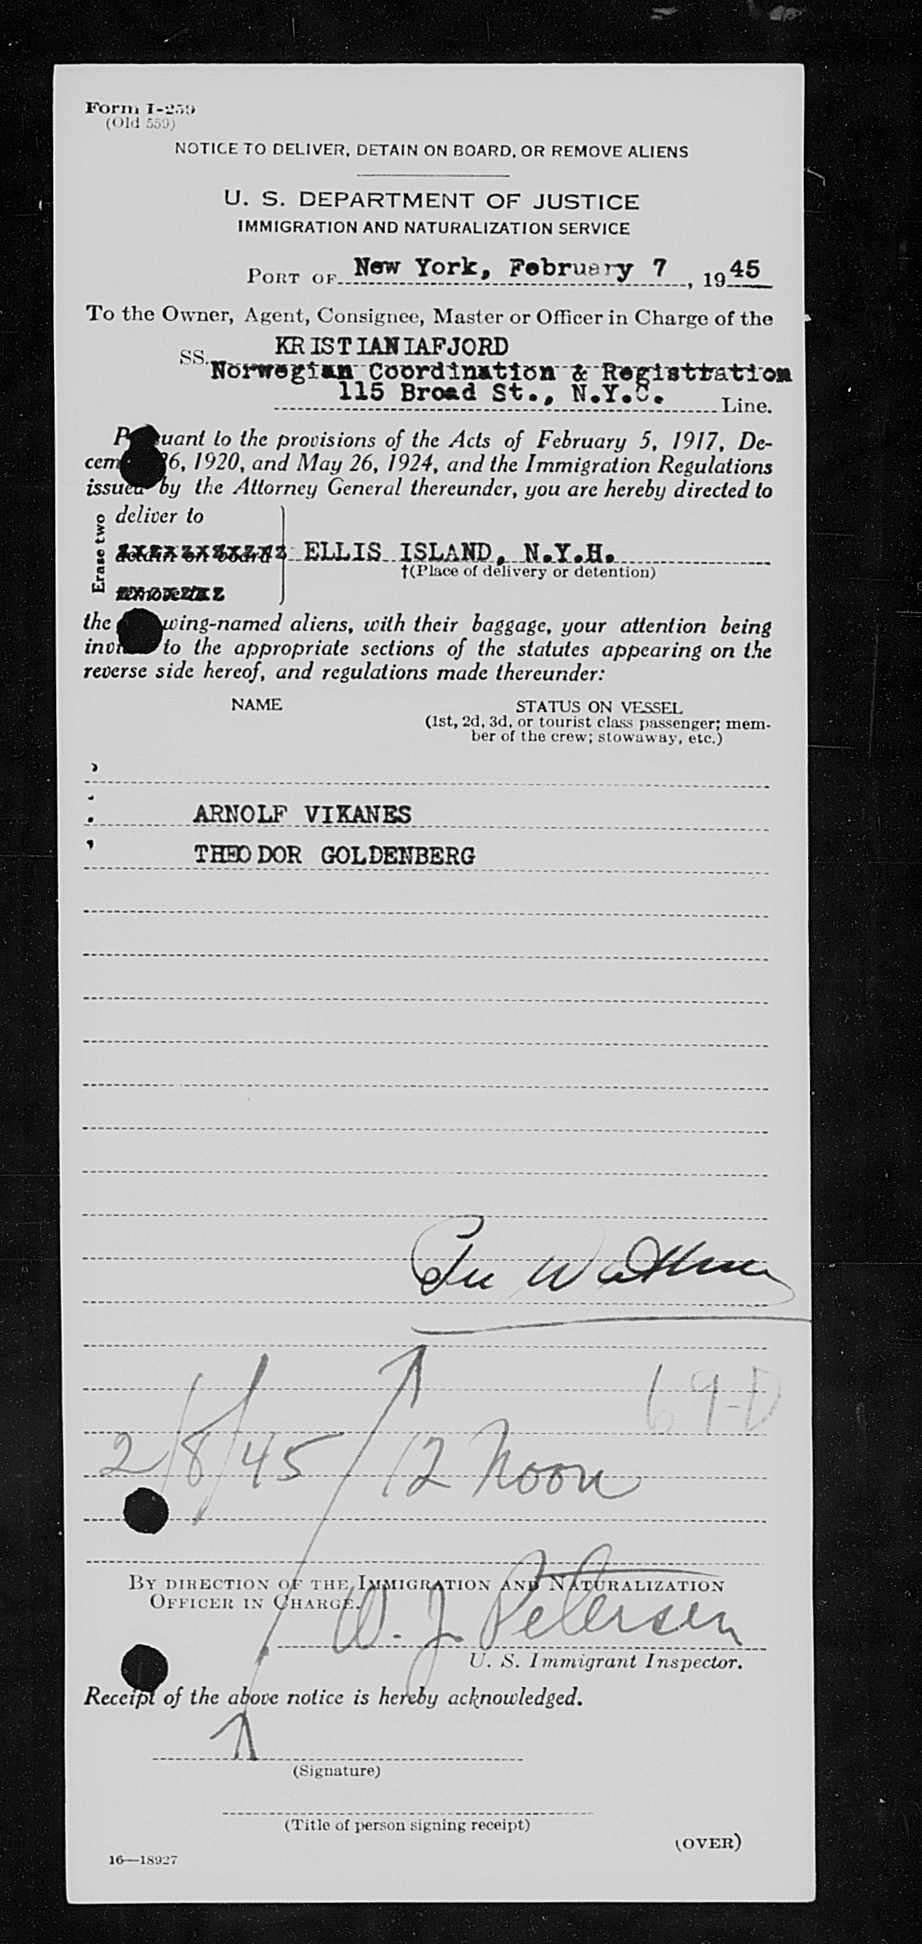 Form I-259
(Old 559)
NOTICE TO DELIVER, DETAIN ON BOARD, OR REMOVE ALIENS
U. S. DEPARTMENT OF JUSTICE
IMMIGRATION AND NATURALIZATION SERVICE
PORT OF New York, February 7, 1945
To the Owner, Agent, Consignee, Master or Officer in Charge of the
SS. KRISTIANIAFJORD
Norwegian Coordination & Registration
115 Broad St., N.Y.C. Line.
uant to the provisions of the Acts of February 5, 1917, De-
cem 6, 1920, and May 26, 1924, and the Immigration Regulations
issued by the Attorney General thereunder, you are hereby directed to
Erase two
deliver to
detain on board ELLIS ISLAND, N.Y.H.
†(Place of delivery or detention)
remove
the wing-named aliens, with their baggage, your attention being
to the appropriate sections of the statutes appearing on the
reverse side hereof, and regulations made thereunder:
NAME STATUS ON VESSEL
(1st, 2d, 3d, or tourist class passenger; mem-
ber of the crew; stowaway, etc.)
ARNOLF VIKANES
THEODOR GOLDENBERG
69-D
2/8/45 12 Noon
BY DIRECTION OF THE IMMIGRATION AND NATURALIZATION
OFFICER IN CHARGE.
W. J. Petersen
U. S. Immigrant Inspector.
Receipt of the above notice is hereby acknowledged.
(Signature)
(Title of person signing receipt)
(OVER)
16—18927